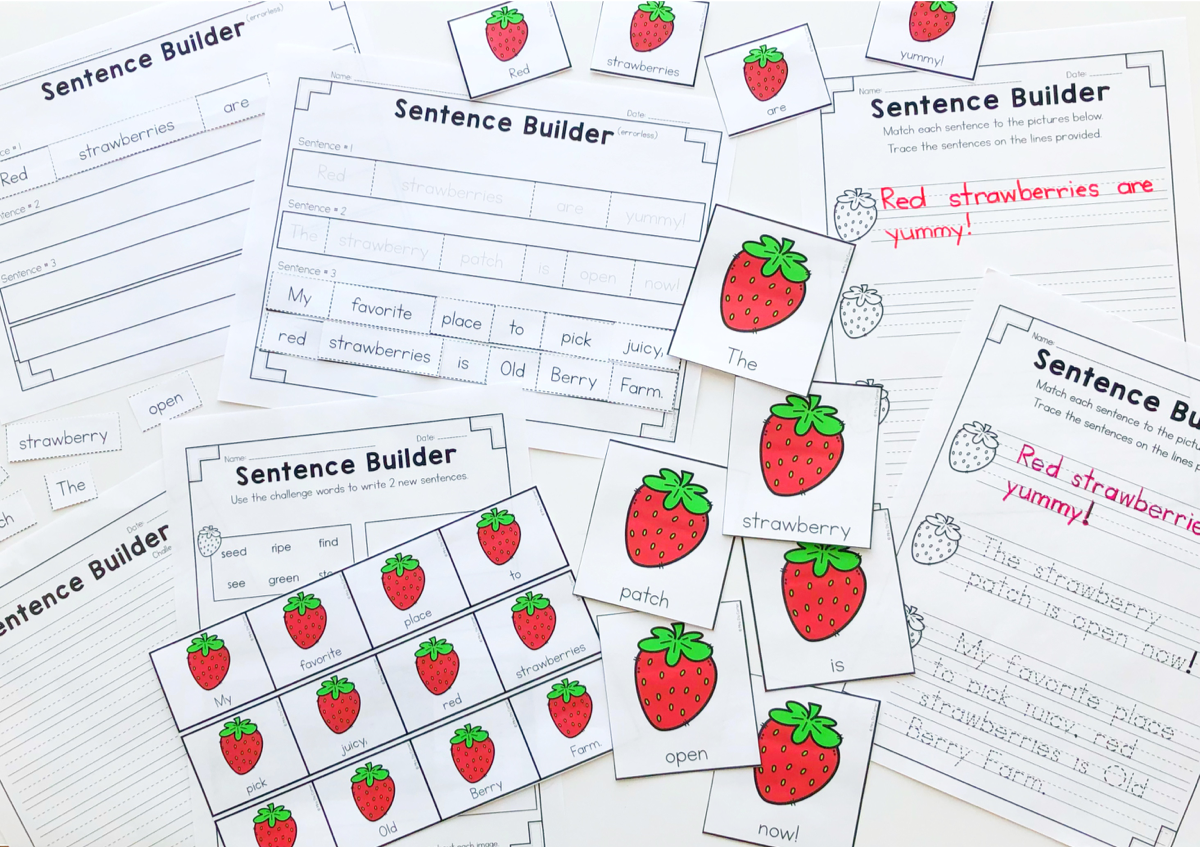 Sentence Builder (errorless)
Red strawberries are
Sentence # 3
Name:
Date:
Sentence Builder (errorless)
Sentence # 1
Red strawberries are yummy!
Sentence # 2
The strawberry patch is open now!
Sentence # 3
My favorite place to pick juicy,
red strawberries is Old Berry Farm.
Red
strawberries
are
yummy!
Name:
Date:
Sentence Builder
Match each sentence to the pictures below.
Trace the sentences on the lines provided.
Red strawberries are
yummy!
open
strawberry
The
Date:
Name:
Date:
Sentence Builder
Use the challenge words to write 2 new sentences.
seed ripe find
see green
My favorite place to
pick juicy, red strawberries
Old Berry Farm.
The
strawberry
patch
is
open
now!
Name:
Match each sentence to the
Trace the sentences on the lines
Red
yummy!
The strawberry
patch is open now!
My favorite place
to pick juicy, red
strawberries is Old
Berry Farm.